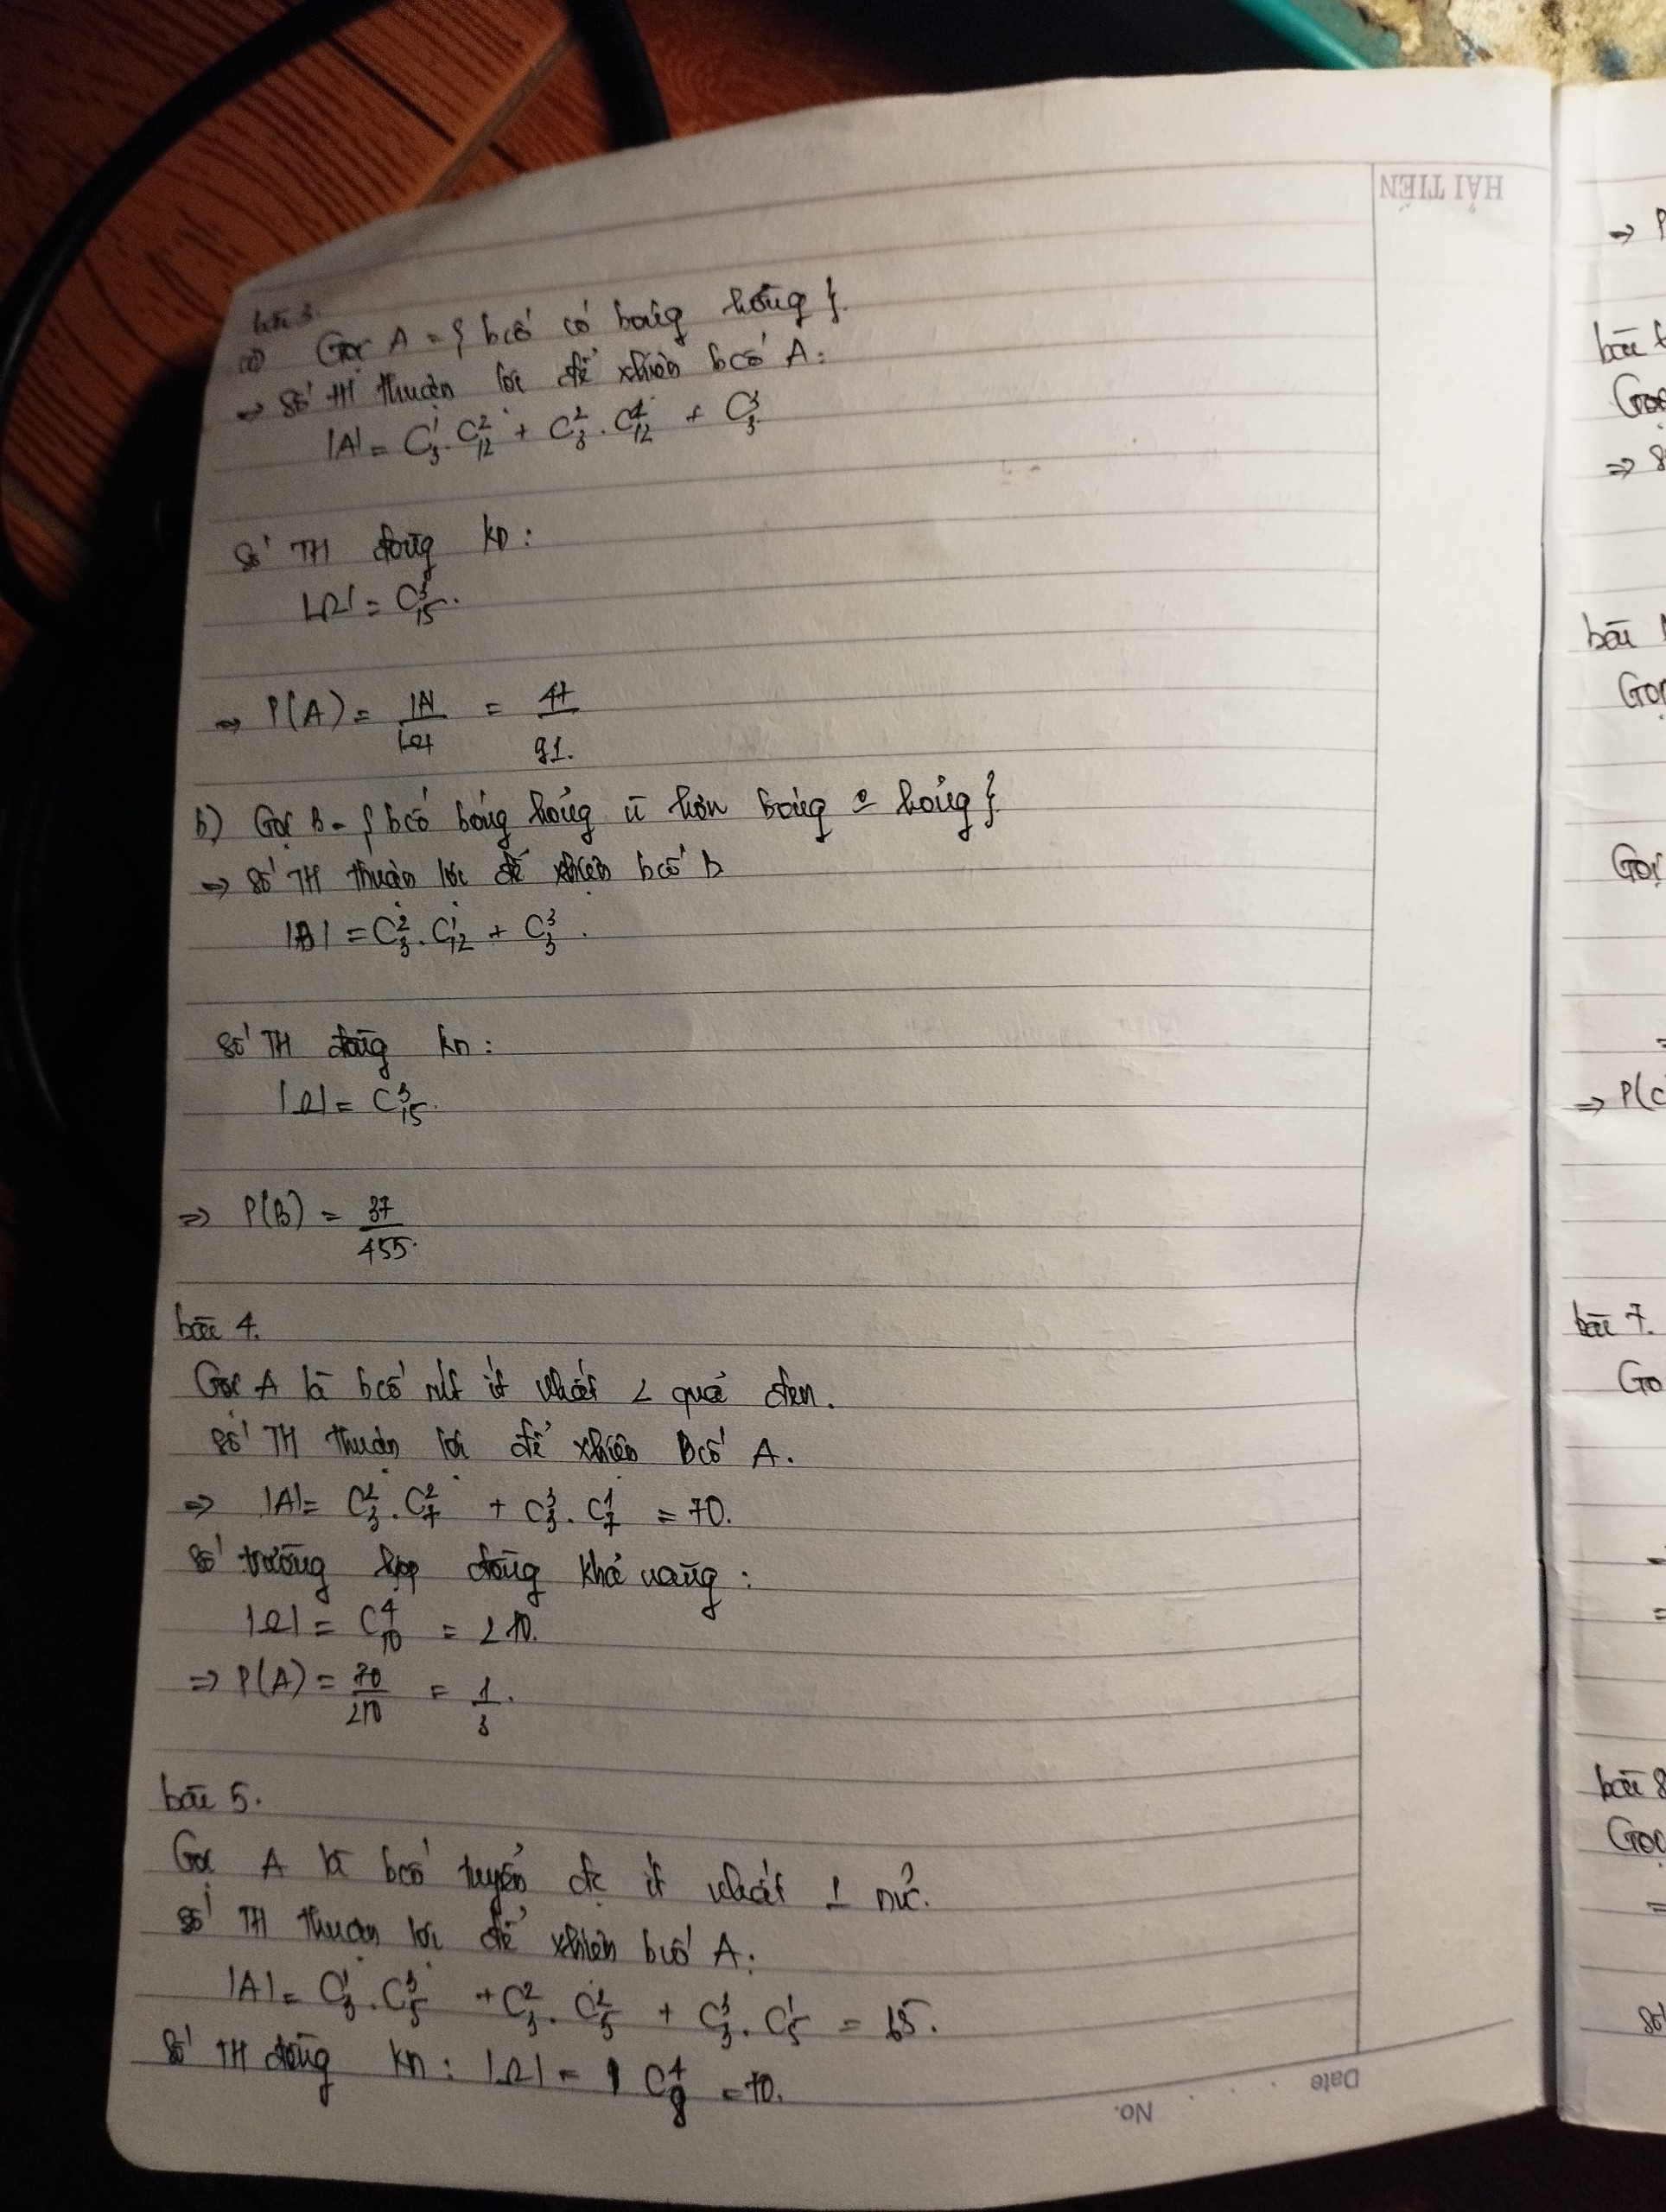 HẢI TIẾN
bài 3.
a) Gọi A = { bcố có bóng hỏng }.
⇒ Số TH thuận lợi để xhiện bcố A:
|A| = C₃¹. C₁₂² + C₃². C₁₂¹ + C₃³
Số TH đồng kn:
|Ω| = C₁₅³.
⇒ P(A) = |A|/|Ω| = 47/91.
b) Gọi B = { bcố bóng hỏng ù hơn bóng o hỏng }.
⇒ Số TH thuận lợi để xhiện bcố B
|B| = C₃². C₁₂¹ + C₃³.
Số TH đồng kn:
|Ω| = C₁₅³.
⇒ P(B) = 37/455.
bài 4.
Gọi A là bcố rút ít nhất 2 quả đen.
Số TH thuận lợi để xhiện Bcố A.
⇒ |A| = C₃². C₇² + C₃³. C₇¹ = 70.
Số trường hợp đồng khả năng:
|Ω| = C₁₀⁴ = 210.
⇒ P(A) = 70/210 = 1/3.
bài 5.
Gọi A là bcố tuyển đc ít nhất 1 nữ.
Số TH thuận lợi để xhiện bcố A:
|A| = C₃¹. C₅³ + C₃². C₅² + C₃³. C₅¹ = 65.
Số TH đồng kn: |Ω| = C₈⁴ = 70.
Date
No.
⇒ P
bài
Gọi
⇒ S
bài
Gọi
Gọi
=
⇒ P(C
bài 7.
Gọ
=
bài 8
Gọi
=
Số